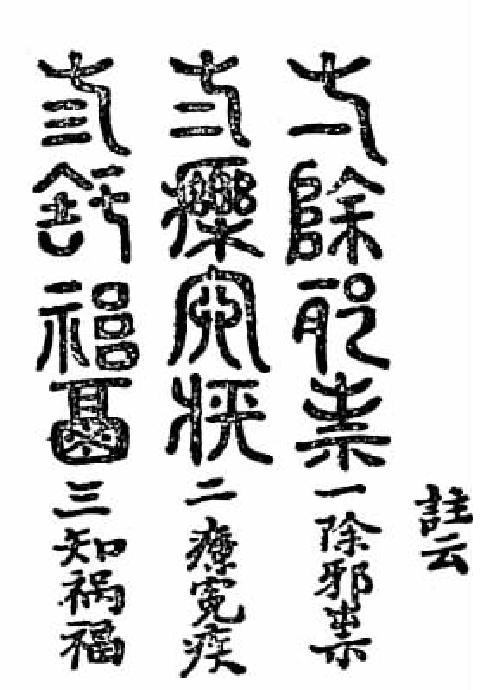 弌除邪祟
弍療冤疾
弎知禍福
註云
一除邪祟
二療冤疾
三知祸福